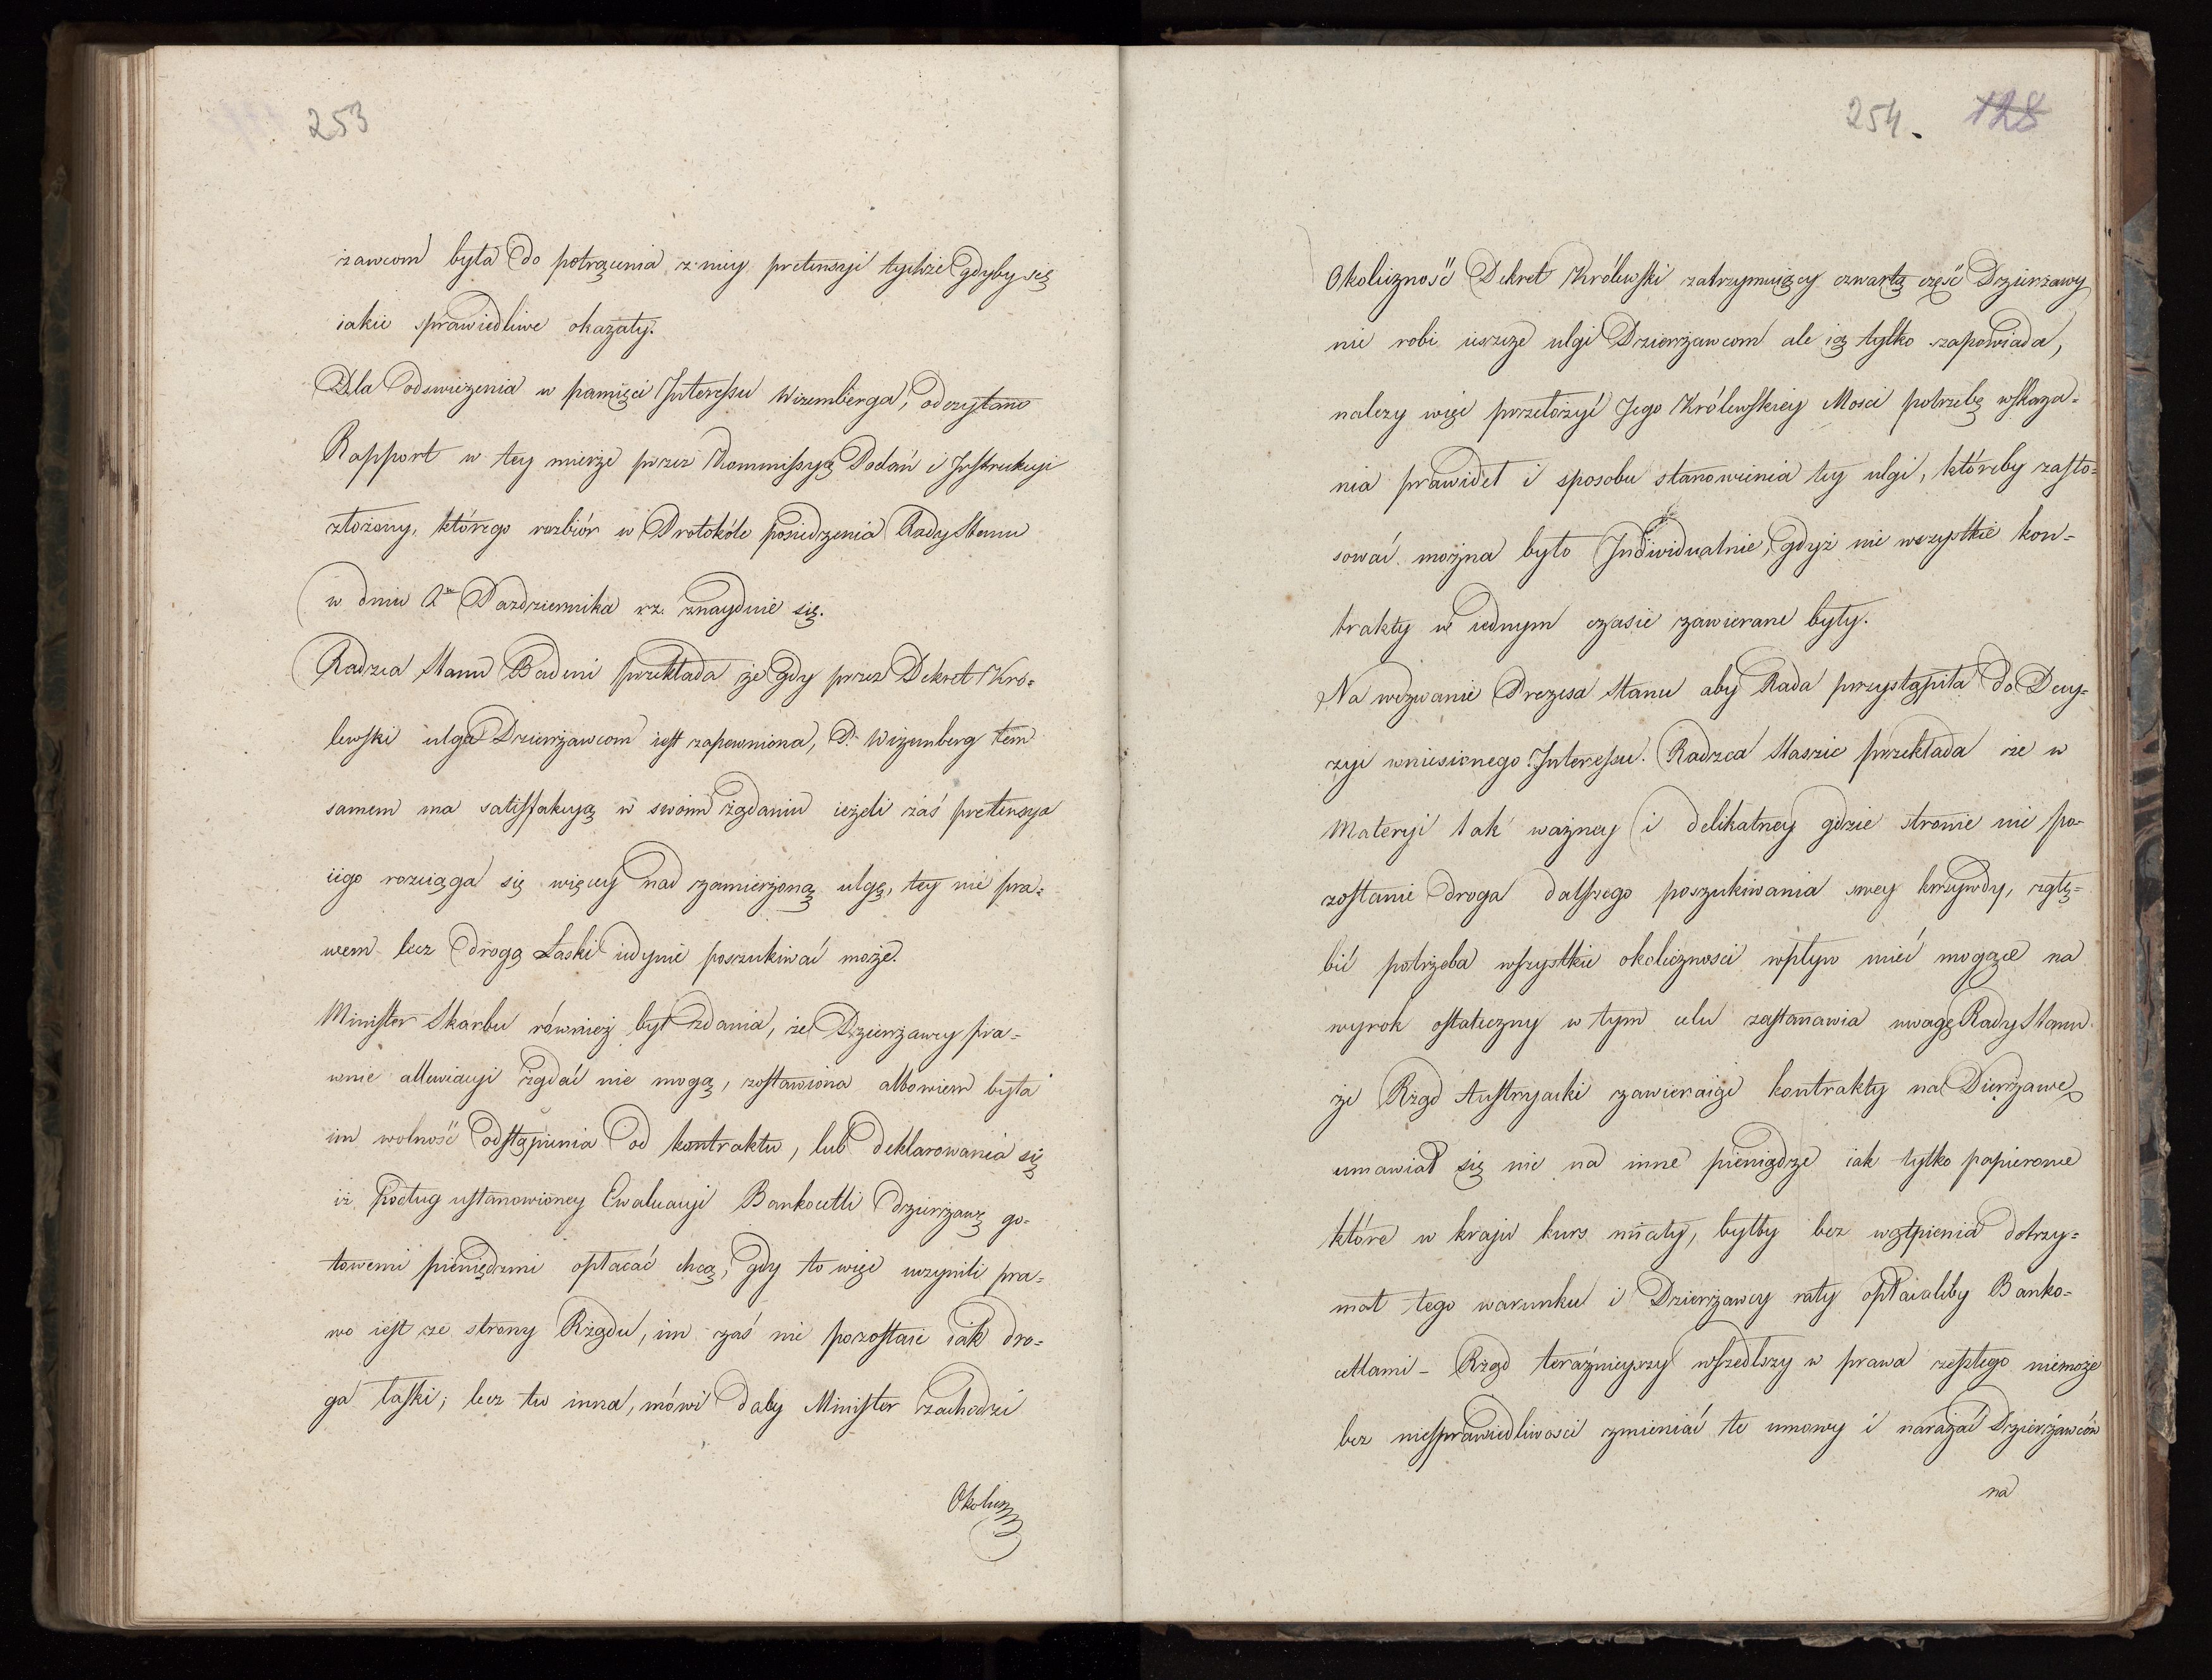 253
żawcom była do potrącenia z niey pretensyi tychże gdyby się
iakie sprawiedliwe okazały.
Dla odswieżenia w pamięci Interessu Wizemberga, odczytano
Rapport w tey mierze przez Kommissyą Podań i Instrukcyi
złożony, którego rozbiór w Protokóle posiedzenia Rady Stanu
w dniu 2go Pazdziernika r.z. znayduie się.
Radzca Stanu Badeni przekłada że gdy przez Dekret Kro=
lewski ulga Dzierżawcom iest zapewniona, P. Wizemberg tem
samem ma satisfakcyą w swoim żądaniu ieżeli zaś pretensya
iego rozciąga się więcey nad zamierzoną ulgę, tey nie pra=
wem lecz drogą Łaski iedynie poszukiwać może.
Minister Skarbu również był zdania, że Dzierżawcy pra=
wnie allewiacyi żądać nie mogą, zostawiona albowiem była
im wolność odstąpienia od kontraktu, lub deklarowania się
iż podług ustanowioney Ewaluacyi Bankocetli dzierżawę go=
towemi pieniędzmi opłacać chcą, gdy to więc uczynili pra=
wo iest ze strony Rządu, im zaś nie pozostaie iak dro=
ga łaski; lecz tu inna, mówi daley Minister zachodzi
Okoliczn
254. 128
Okoliczność Dekret Królewski zatrzymuiący czwartą część Dzierzawy
nie robi ieszcze ulgi Dzierżawcom ale ią tylko zapowiada,
należy więc przełożyć Jego Królewskiey Mosci potrzebę wskaza=
nia prawideł i sposobu stanowienia tey ulgi, któreby zasto=
sować można było Indiwidualnie, gdyż nie wszystkie kon=
trakty w iednym czasie zawierane były.
Na wezwanie Prezesa Stanu aby Rada przystąpiła do Decy=
zyi wniesionego Interessu. Radzca Staszic przekłada że w
Materyi tak ważney i delikatney gdzie stronie nie po=
zostanie droga dalszego poszukiwania swey krzywdy, zgłę=
bić potrzeba wszystkie okoliczności wpływ mieć mogące na
wyrok ostateczny w tym celu zastanawia uwagę Rady Stanu
że Rząd Austryacki zawieraiąc kontrakty na Dierżawę
umawiał się nie na inne pieniądze iak tylko papierowe
które w kraju kurs miały, byłby bez wątpienia dotrzy=
mał tego warunku i Dzierżawcy raty opłacaliby Banko=
cetlami - Rząd teraźnieyszy wszedłszy w prawa zeszłego niemoże
bez niesprawiedliwości zmieniać te umowy i narażać Dzierżawców
na